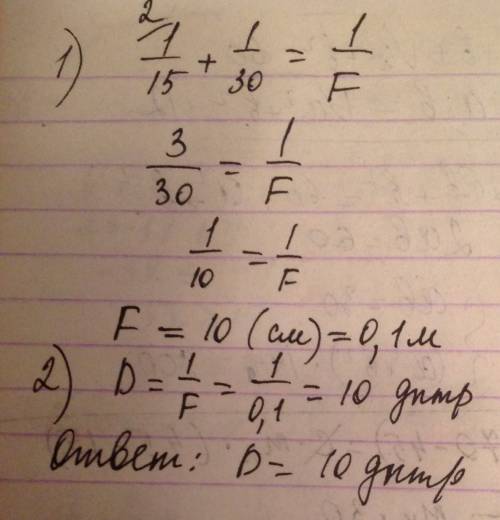 1) 1/15 (2 + 1/30 = 1/F
3/30 = 1/F
1/10 = 1/F
F = 10 (см) = 0,1 м
2) D = 1/F = 1/0,1 = 10 дптр
Ответ: D = 10 дптр